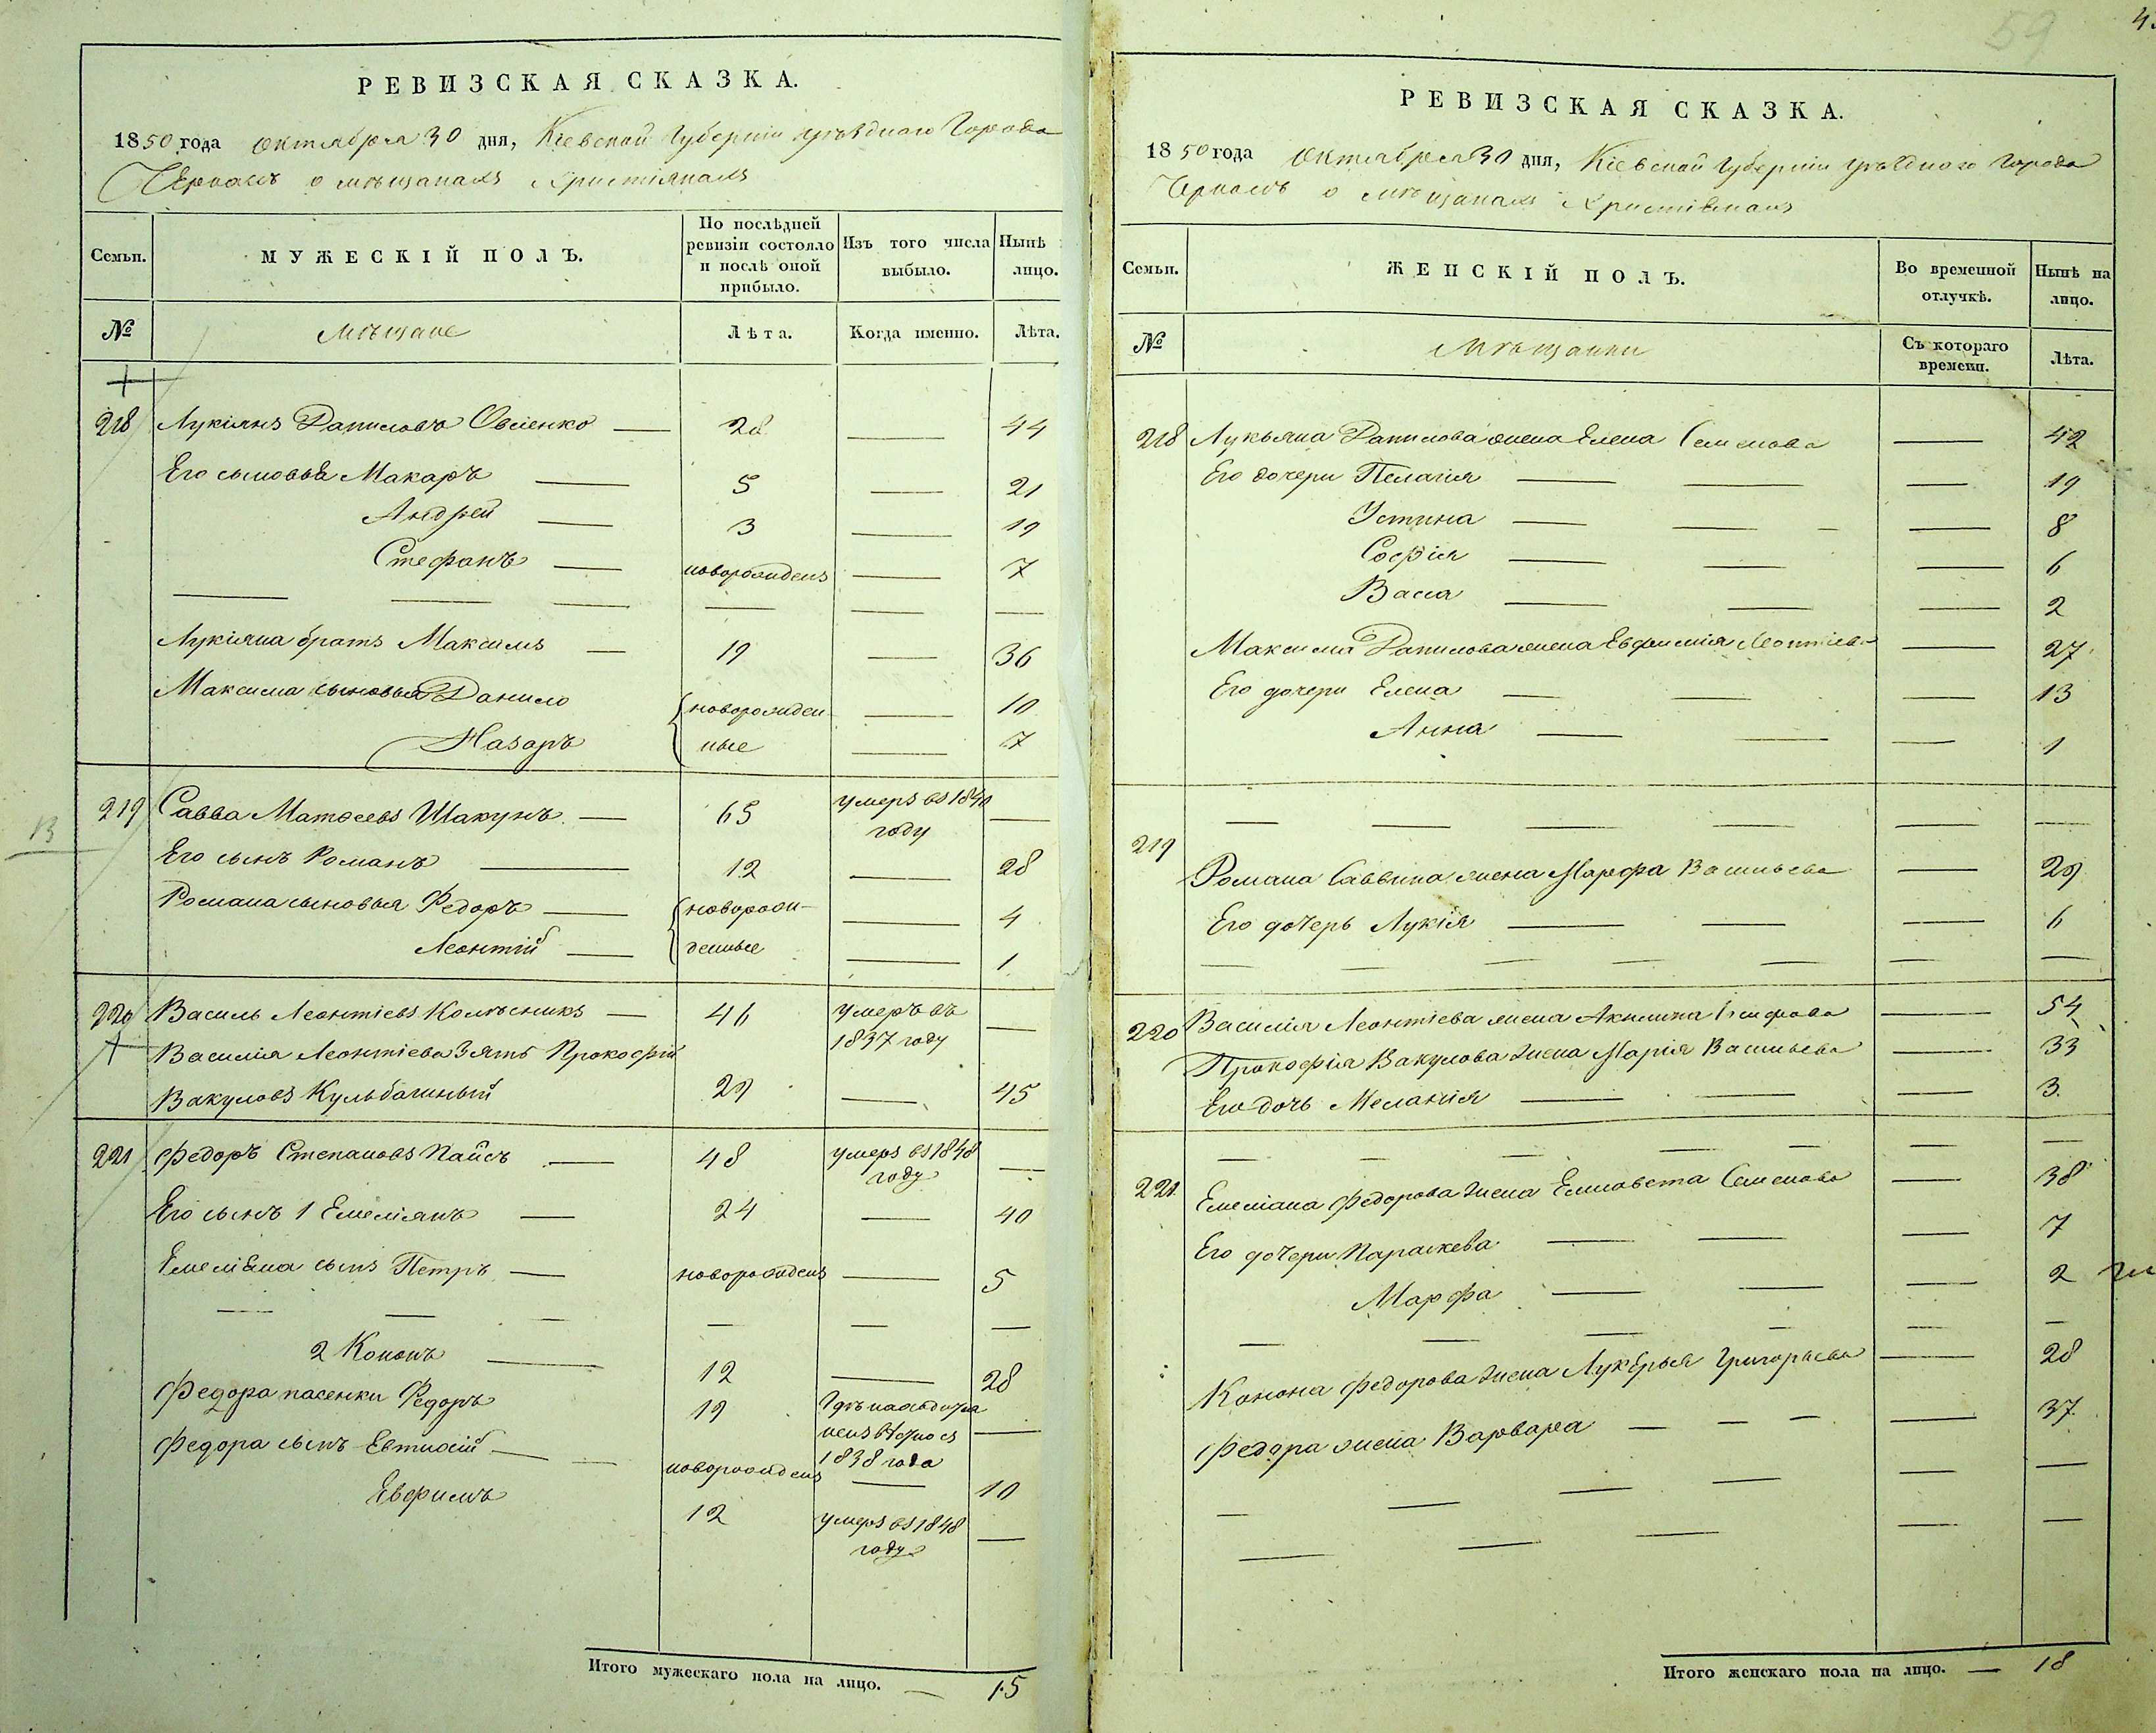 РЕВИЗСКАЯ СКАЗКА.
1850 года октября 30 дня, Кіевской Губерніи уѣзднаго Города
Черкасъ о мѣщанахъ Христіянахъ
Семьи. МУЖЕСКІЙ ПОЛЪ. По послѣдней ревизіи состояло и послѣ оной прибыло. Изъ того числа выбыло. Нынѣ лицо.
№ Мѣщане Лѣта. Когда именно. Лѣта.
218 Лукіянъ Даниловъ Овсіенко — 28 — 44
Его сыновья Макаръ — 5 — 21
Андрей — 3 — 19
Стефанъ — новорожденъ — 7
Лукіяна братъ Максимъ — 19 — 36
Максима сыновья Данило новорожден — 10
Назаръ ные — 7
219 Савва Матѳеевъ Шакунъ — 65 умеръ въ 1840 —
году
Его сынъ Романъ — 12 — 28
Романа сыновья Федоръ — новорож- — 4
Леонтій — денные — 1
220 Василь Леонтіевъ Колѣсникъ — 46 умеръ въ —
1837 году
Василія Леонтіева Зять Прокофій
Вакуловъ Кульбашный 29 — 45
221 Федоръ Степановъ Паůсъ — 48 умеръ въ 1848 —
году
Его сынъ 1 Емеліянъ — 24 — 40
Емеліяна сынъ Петръ — новорожденъ — 5
2 Кононъ — 12 — 28
Федора пасенки Федоръ 19 —
1838 года
Федора сынъ Евтихій — новорожденъ — 10
Евфимъ 12 умеръ въ 1848 —
году
Итого мужескаго пола на лицо. — 15
В
59
РЕВИЗСКАЯ СКАЗКА.
1850 года Октября 30 дня, Кіевской Губерніи уѣзднаго Города
Черкасъ о мѣщанахъ Христіянахъ
Семьи. ЖЕНСКІЙ ПОЛЪ. Во временной отлучкѣ. Нынѣ на лицо.
№ Мѣщанки Съ котораго времени. Лѣта.
218 Лукьяна Данилова жена Елена Семенова — 42
Его дочери Пелагія — 19
Устина — 8
Софія — 6
Васса — 2
Максима Данилова жена Евфимія Леонтіева — 27
Его дочери Елена — 13
Анна — 1
219
Романа Саввина жена Марфа Васильева — 29
Его дочерь Лукія — 6
220 Василія Леонтіева жена Акилина — 54
Прокофія Вакулова жена Марія Васильева — 33
Его дочь Меланія — 3
221 Емеліана Федорова жена Елисавета Семенова — 38
Его дочери Параскева — 7
Марфа — 2
Конона Федорова жена Лукерья Григорьева — 28
Федора жена Варвара — 37
Итого женскаго пола на лицо. — 18